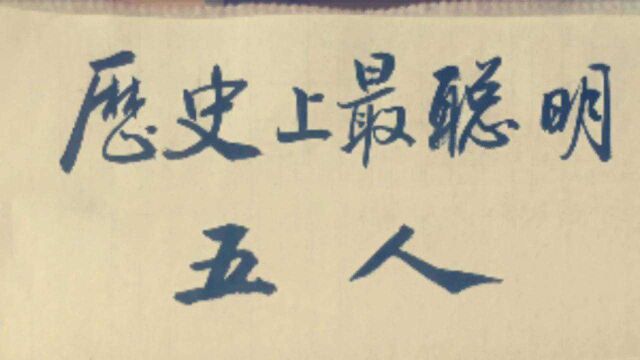 歷史上最聪明
五人